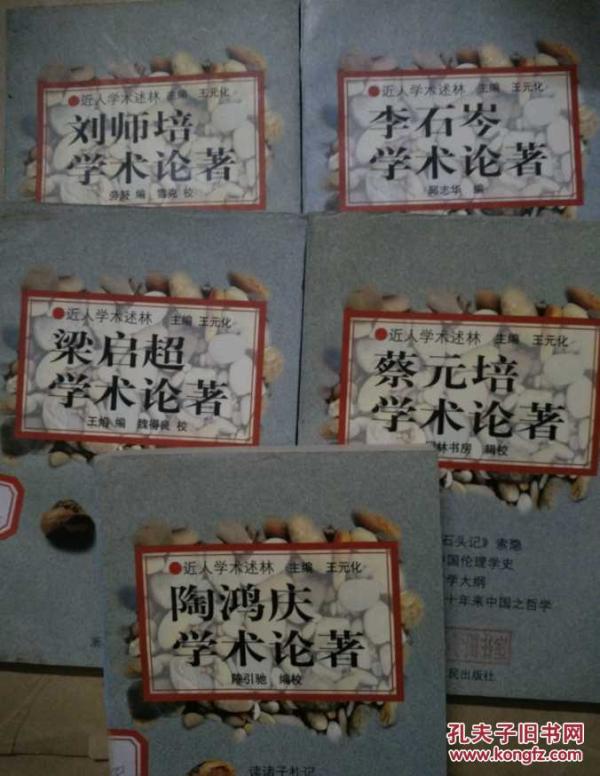 ●近人学术述林 主编 王元化
刘师培
学术论著
劳舒 编 雪克 校
●近人学术述林 主编 王元化
李石岑
学术论著
郭志华 编
●近人学术述林 主编 王元化
梁启超
学术论著
王焰 编 魏得良 校
●近人学术述林 主编 王元化
蔡元培
学术论著
林书房 辑校
石头记》索隐
国伦理学史
学大纲
十年来中国之哲学
民出版社
●近人学术述林 主编 王元化
陶鸿庆
学术论著
陆引驰 编校
读诸子札记
孔夫子旧书网
www.kongfz.com